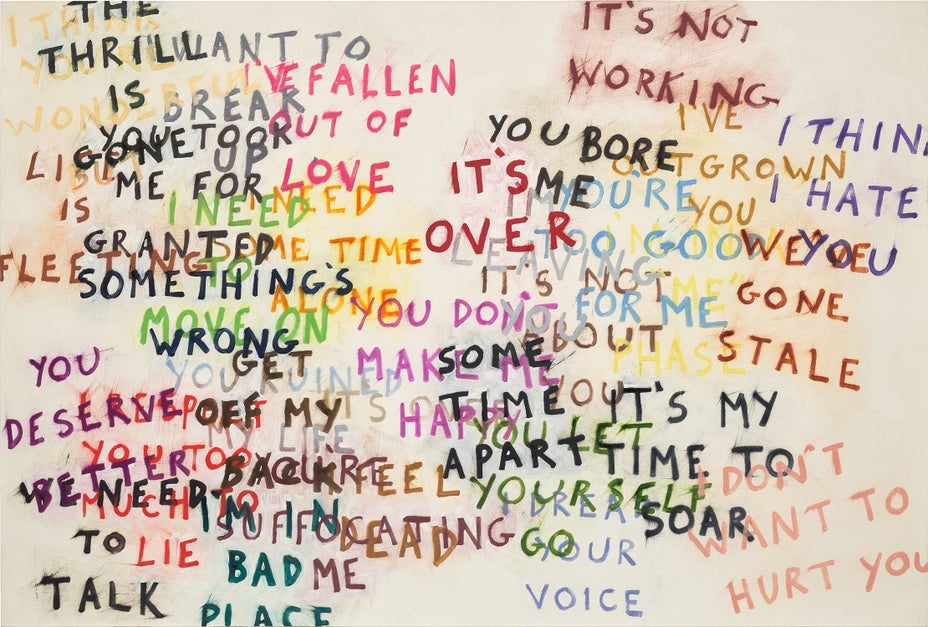 THE
THRILL
IS
GONE
I THINK
YOU'RE
WONDERFUL
BUT
I WANT TO
BREAK
UP
I'VE FALLEN
OUT OF
LOVE
IT'S NOT
WORKING
YOU TOOK
ME FOR
GRANTED
IS
FLEETING
I NEED
TO
MOVE ON
I NEED
SOME TIME
ALONE
SOMETHING'S
WRONG
YOU BORE
ME
IT'S
OVER
I'VE
OUTGROWN
YOU
I THIN
I HATE
YOU
YOU'RE
TOO GOOD
FOR ME
I'M
LEAVING
YOU
I'M IN
"ME"
PHASE
WE'VE
GONE
STALE
IT'S NOT
ABOUT
YOU
YOU DON'T
MAKE ME
HAPPY
SOME
TIME
APART
YOU RUINED
MY LIFE
GET
OFF MY
BACK
YOU
DESERVE
BETTER
YOU TOO
MUCH TO
LIE
WE NEED
TO
TALK
YOU'RE
SUFFOCATING
ME
I'M IN
BAD
PLACE
I FEEL
DEAD
YOU LET
YOURSELF
GO
I DREAD
YOUR
VOICE
IT'S MY
TIME TO
SOAR.
I DON'T
WANT TO
HURT YOU